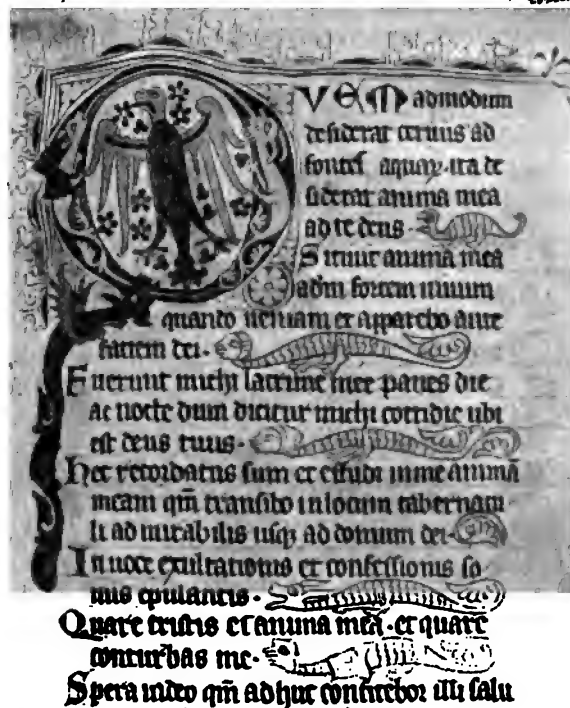 QVEM admodum
desiderat ceruus ad
fontes aquaꝝ · ita de
siderat anima mea
ad te deus ·
Sitiuit anima mea
ad in fontem uiuum
quando ueniam et apparebo ante
faciem dei ·
Fuerunt michi lacrime mee panes die
ac nocte dum dicitur michi cotidie ubi
est deus tuus ·
Hec recordatus sum et effudi in me animā
meam qm̄ transibo in locum tabernacu
li admirabilis usqꝫ ad domum dei ·
In uoce exultationis et confessionis so
nus epulantis ·
Quare tristis es anima mea · et quare
conturbas me ·
Spera in deo qm̄ adhuc confitebor illi salu